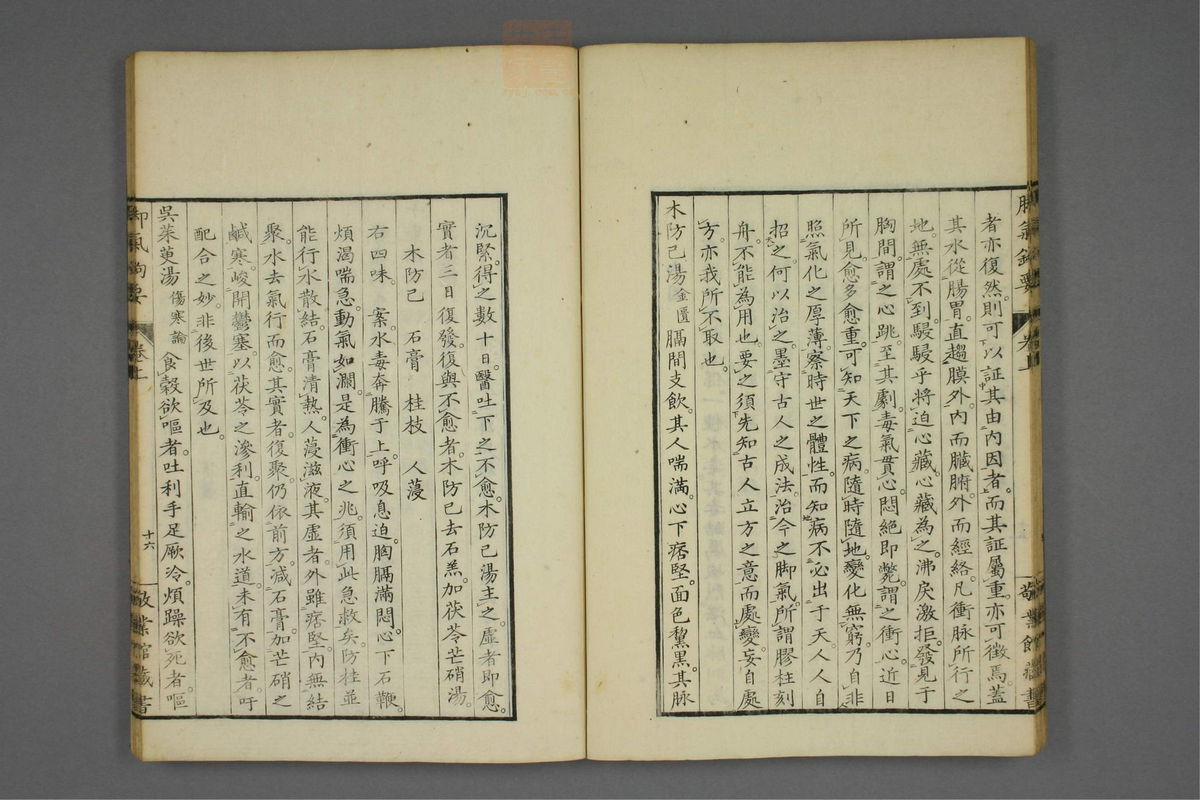 者亦復然。則可以証其由內因者。而其証屬重亦可徵焉。蓋
其水從腸胃。直趨膜外。內而臟腑。外而經絡。凡衝脉所行之
地。無處不到。駸駸乎將迫心藏。心藏為之沸戾激拒。發見于
胸間。謂之心跳。至其劇。毒氣貫心。悶絕即斃。謂之衝心。近日
所見。愈多愈重。可知天下之病。隨時隨地。變化無窮。乃自非
照氣化之厚薄。察時世之體性。而知病不必出于天人人自
招之。何以治之。墨守古人之成法。治今之脚氣。所謂膠柱刻
舟。不能為用也。要之須先知古人立方之意而處變。妄自處
方。亦我所不取也。
木防己湯 金匱 膈間支飲。其人喘滿。心下痞堅。面色黧黑。其脉
沉緊。得之數十日。醫吐下之。不愈。木防己湯主之。虛者即愈。
實者三日復發。復與不愈者。木防己去石羔。加茯苓芒硝湯。
木防己 石膏 桂枝 人蓡
右四味。 案。水毒奔騰于上。呼吸息迫。胸膈滿悶。心下石鞭。
煩渴喘急。動氣如瀾。是為衝心之兆。須用此急救矣。防桂並
能行水散結。石膏清熱。人蓡滋液。其虛者。外雖痞堅。內無結
聚。水去氣行而愈。其實者。復聚。仍依前方。減石膏。加芒硝之
鹹寒。峻開鬱塞。以茯苓之滲利。直輸之水道。未有不愈者。吁
配合之妙。非後世所及也。
吳茱萸湯 傷寒論 食穀欲嘔者。吐利手足厥冷。煩躁欲死者。嘔
卷上
十六